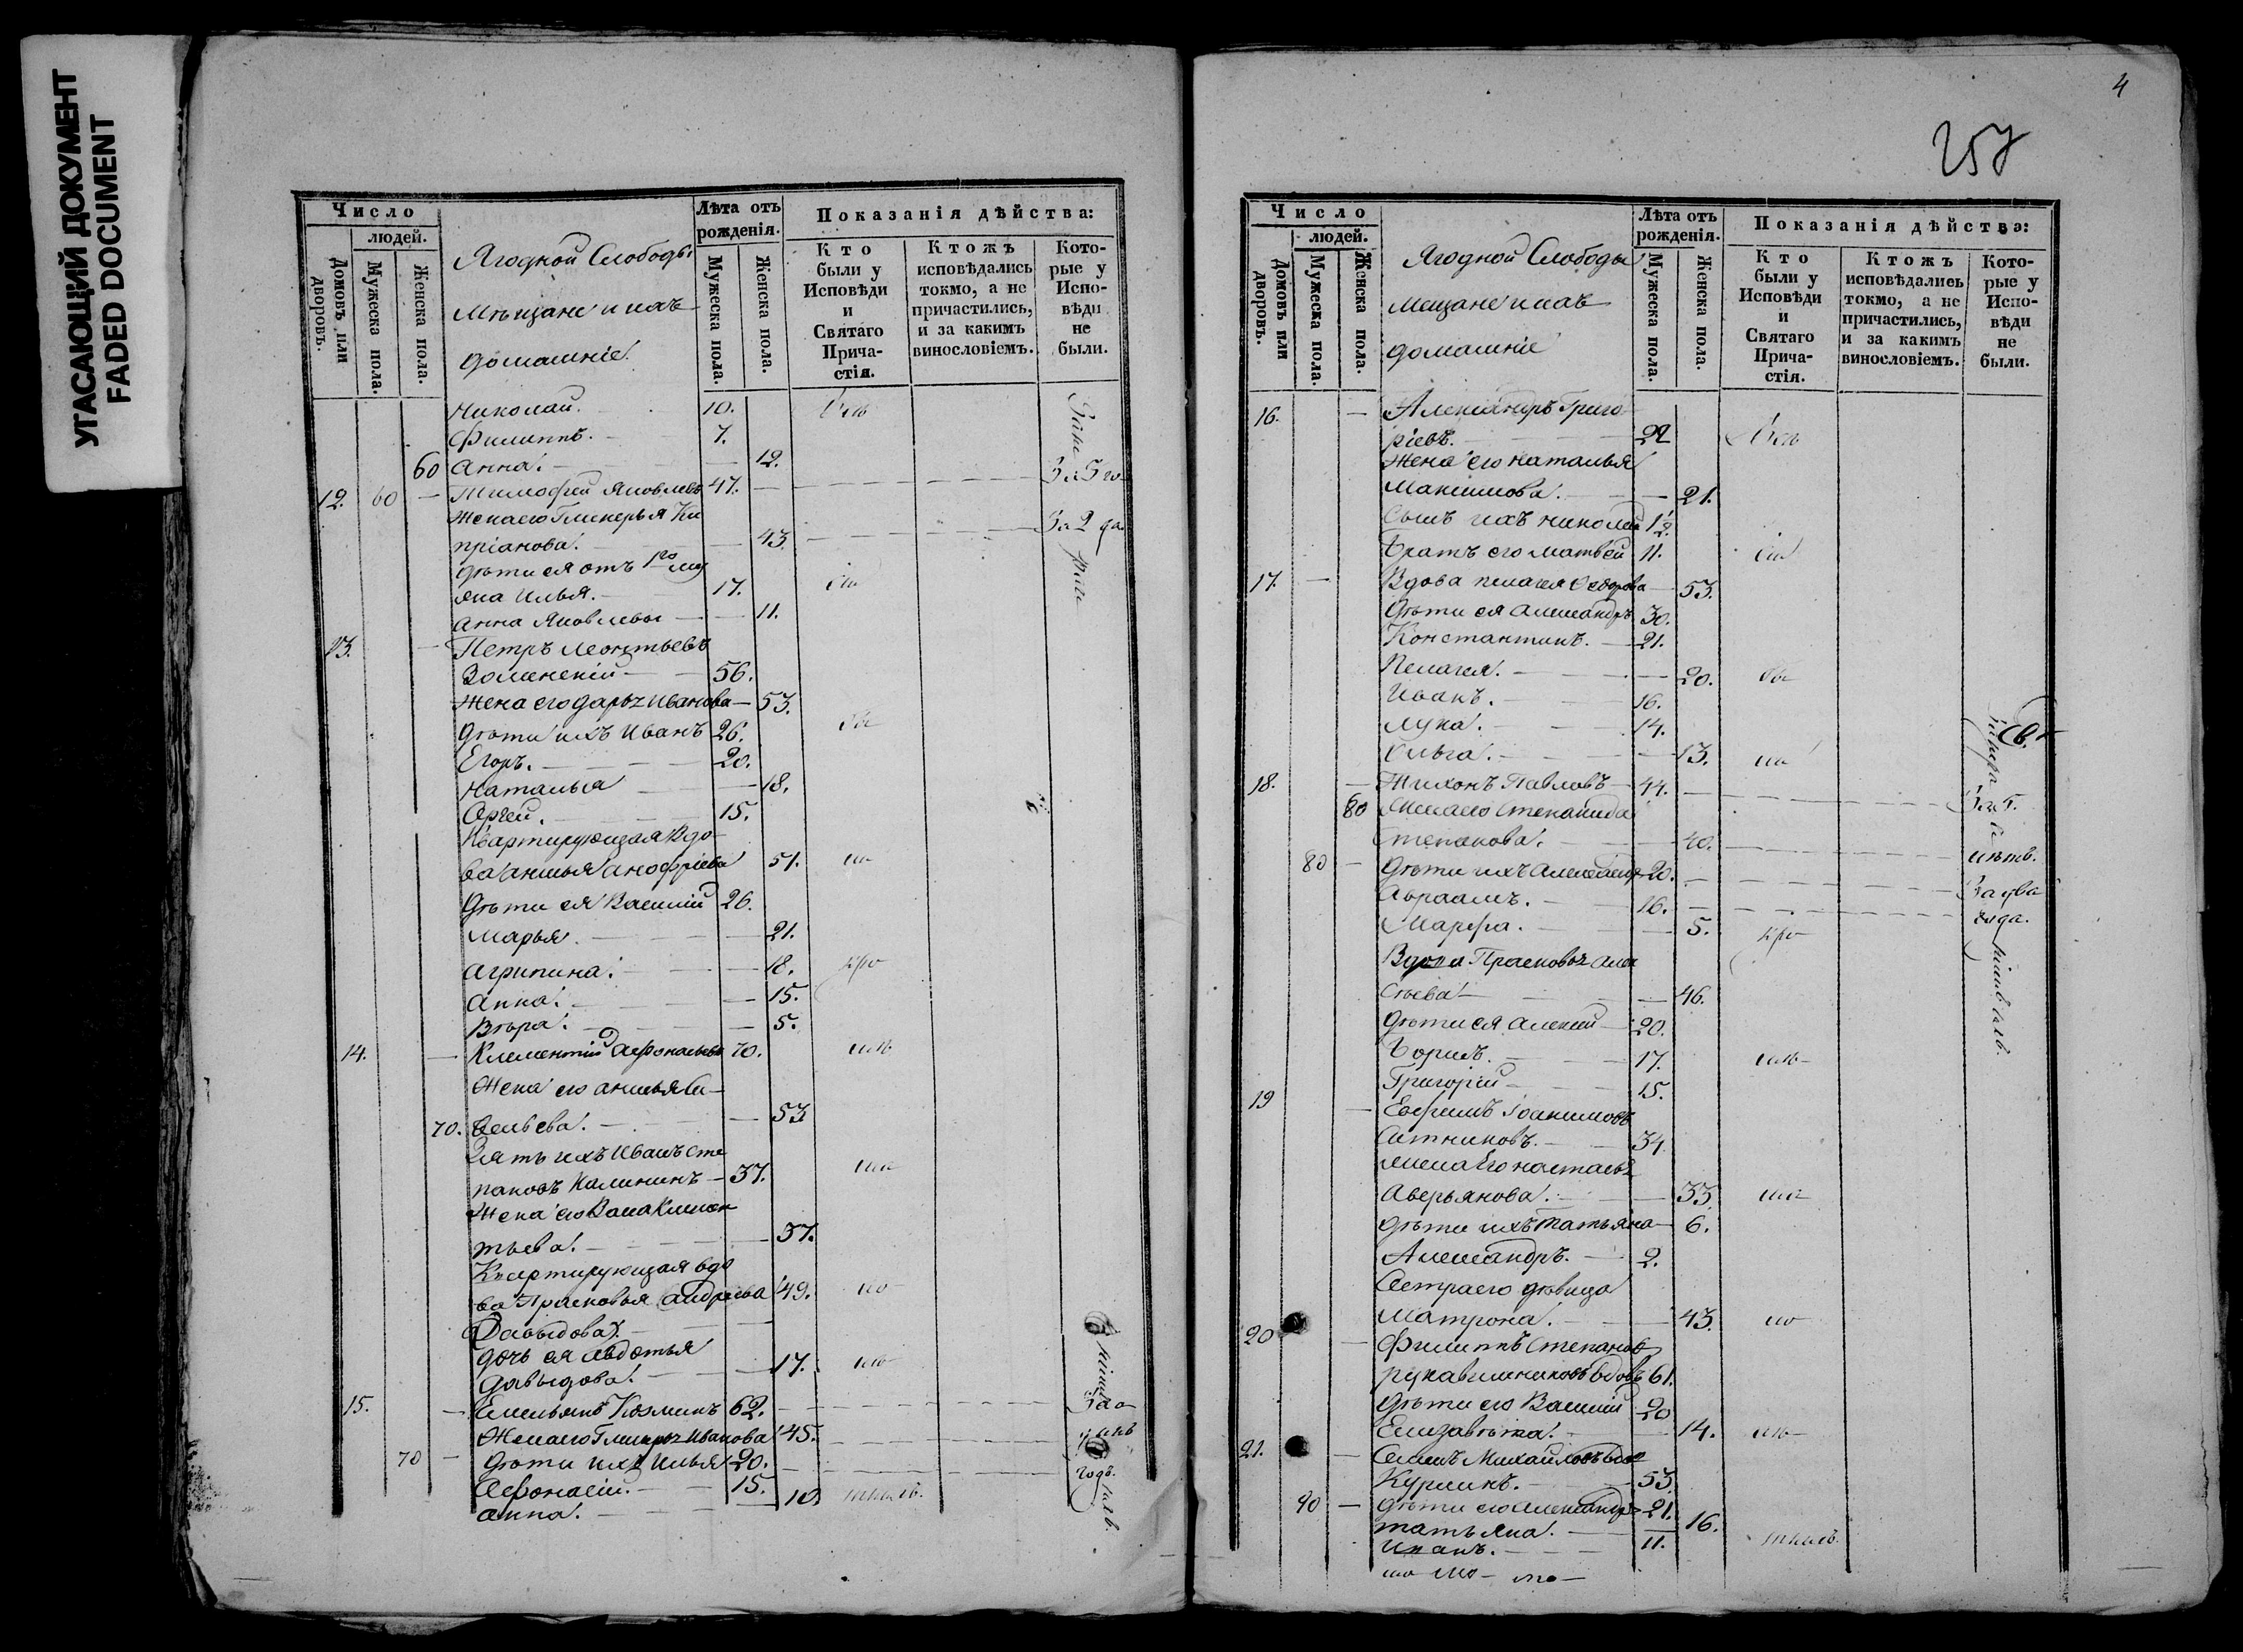 УГАСАЮЩИЙ ДОКУМЕНТ
FADED DOCUMENT
Число
людей.
Домовъ или дворовъ.
Мужеска пола.
Женска пола.
Ягодной Слободы
Мѣщане и ихъ
домашніе.
Лѣта отъ рожденія.
Мужеска пола.
Женска пола.
Показанія дѣйства:
Кто были у Исповѣди и Святаго Причастія.
Ктожъ исповѣдались токмо, а не причастились, и за какимъ винословіемъ.
Которые у Исповѣди не были.
Николай. 10.
Филиппъ. 7.
60 Анна. 12.
12. 60 Тимофей Яковлевъ 47. За 5 го
Жена его Гликерья Ки
пріанова. 43. За 2 да
Дѣти ея отъ 1го му
яна Илья. 17.
Анна Яковлевы 11.
13. Петръ Леонтьевъ
56.
Жена его Дарья Иванова 53.
Дѣти ихъ Иванъ 26.
Егоръ. 20.
Наталья 18.
Сергей. 15.
Квартирующая вдо
ва Анисья Анофріева 51.
Дѣти ея Василій 26.
Марья. 21.
Агрипина. 18.
Анна. 15.
Вѣра. 5.
14. Клементій Афонасьевъ 70.
Жена его Анисья Са
70. вельева. 53
Зять ихъ Иванъ Сте
пановъ Калининъ 37.
Жена его Васа Климен
тьева. 37.
Квартирующая вдо
ва Прасковья Андреева 49.
Давыдова.
Дочь ея Авдотья
Давыдова. 17.
15. Емельянъ Козминъ 62.
Жена его Гликерья Иванова 45.
70 Дѣти ихъ Илья 20. годъ.
Афонасій. 15.
Анна. 10.
4
257
Число
людей.
Домовъ или дворовъ.
Мужеска пола.
Женска пола.
Ягодной Слободы
Мещане и ихъ
домашніе
Лѣта отъ рожденія.
Мужеска пола.
Женска пола.
Показанія дѣйства:
Кто были у Исповѣди и Святаго Причастія.
Ктожъ исповѣдались токмо, а не причастились, и за какимъ винословіемъ.
Которые у Исповѣди не были.
16. Александръ Григо
рьевъ. 22
Жена его Наталья
Максимова. 21.
Сынъ ихъ Николай 1/2.
Братъ его Матвей 11.
17. Вдова Пелагея Федорова 53.
Дѣти ея Александръ 30.
Константинъ. 21.
Пелагея. 20.
Иванъ. 16.
Лука. 14.
Ольга. 13.
18. Тихонъ Павловъ 44.
80 Жена его Степанида За 5.
Степанова. 40.
80 Дѣти ихъ Александръ 20. За два
Авраамъ. 16. года.
Марфа. 5.
Вдова Прасковья Алек
сѣева 46.
Дѣти ея Алексей 20.
Борисъ. 17.
Григорій 15.
19 Ефимъ Іоакимовъ
Ситниковъ. 34
Жена его Настасья
Аверьянова. 33.
Дѣти ихъ Татьяна 6.
Александръ. 2.
Сестра его дѣвица
Матрона. 43.
20 Филиппъ Степановъ
Рукавишниковъ вдовъ 61.
Дѣти его Василій 20
Елизавѣта. 14.
21. Семенъ Михайловъ вдов
53.
90 Дѣти его Александръ 21.
Татьяна. 16.
Иванъ. 11.